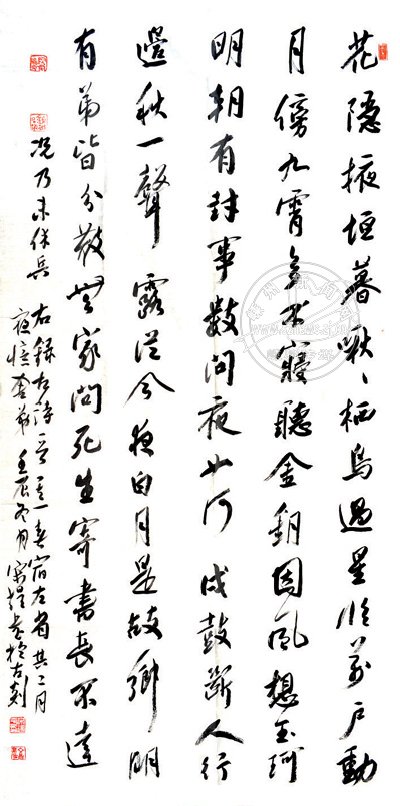 花隱掖垣暮啾々栖鳥過星臨萬戶動
月傍九霄多不寢聽金鑰因風想玉珂
明朝有封事數問夜如何戍鼓斷人行
邊秋一聲露從今夜白月是故鄉明
有弟皆分散無家問死生寄書長不達
況乃未休兵 右錄古詩二首其一春宿左省其二月
夜憶舍弟 壬辰冬月 書於古